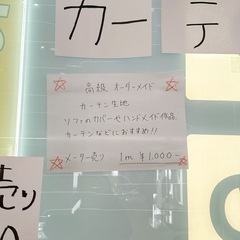 カーテ
高級 オーダーメイド
カーテン生地
ソファのカバーやハンドメイド作品
カーテンなどにおすすめ!!
メーター売り 1m ¥1.000-
売り